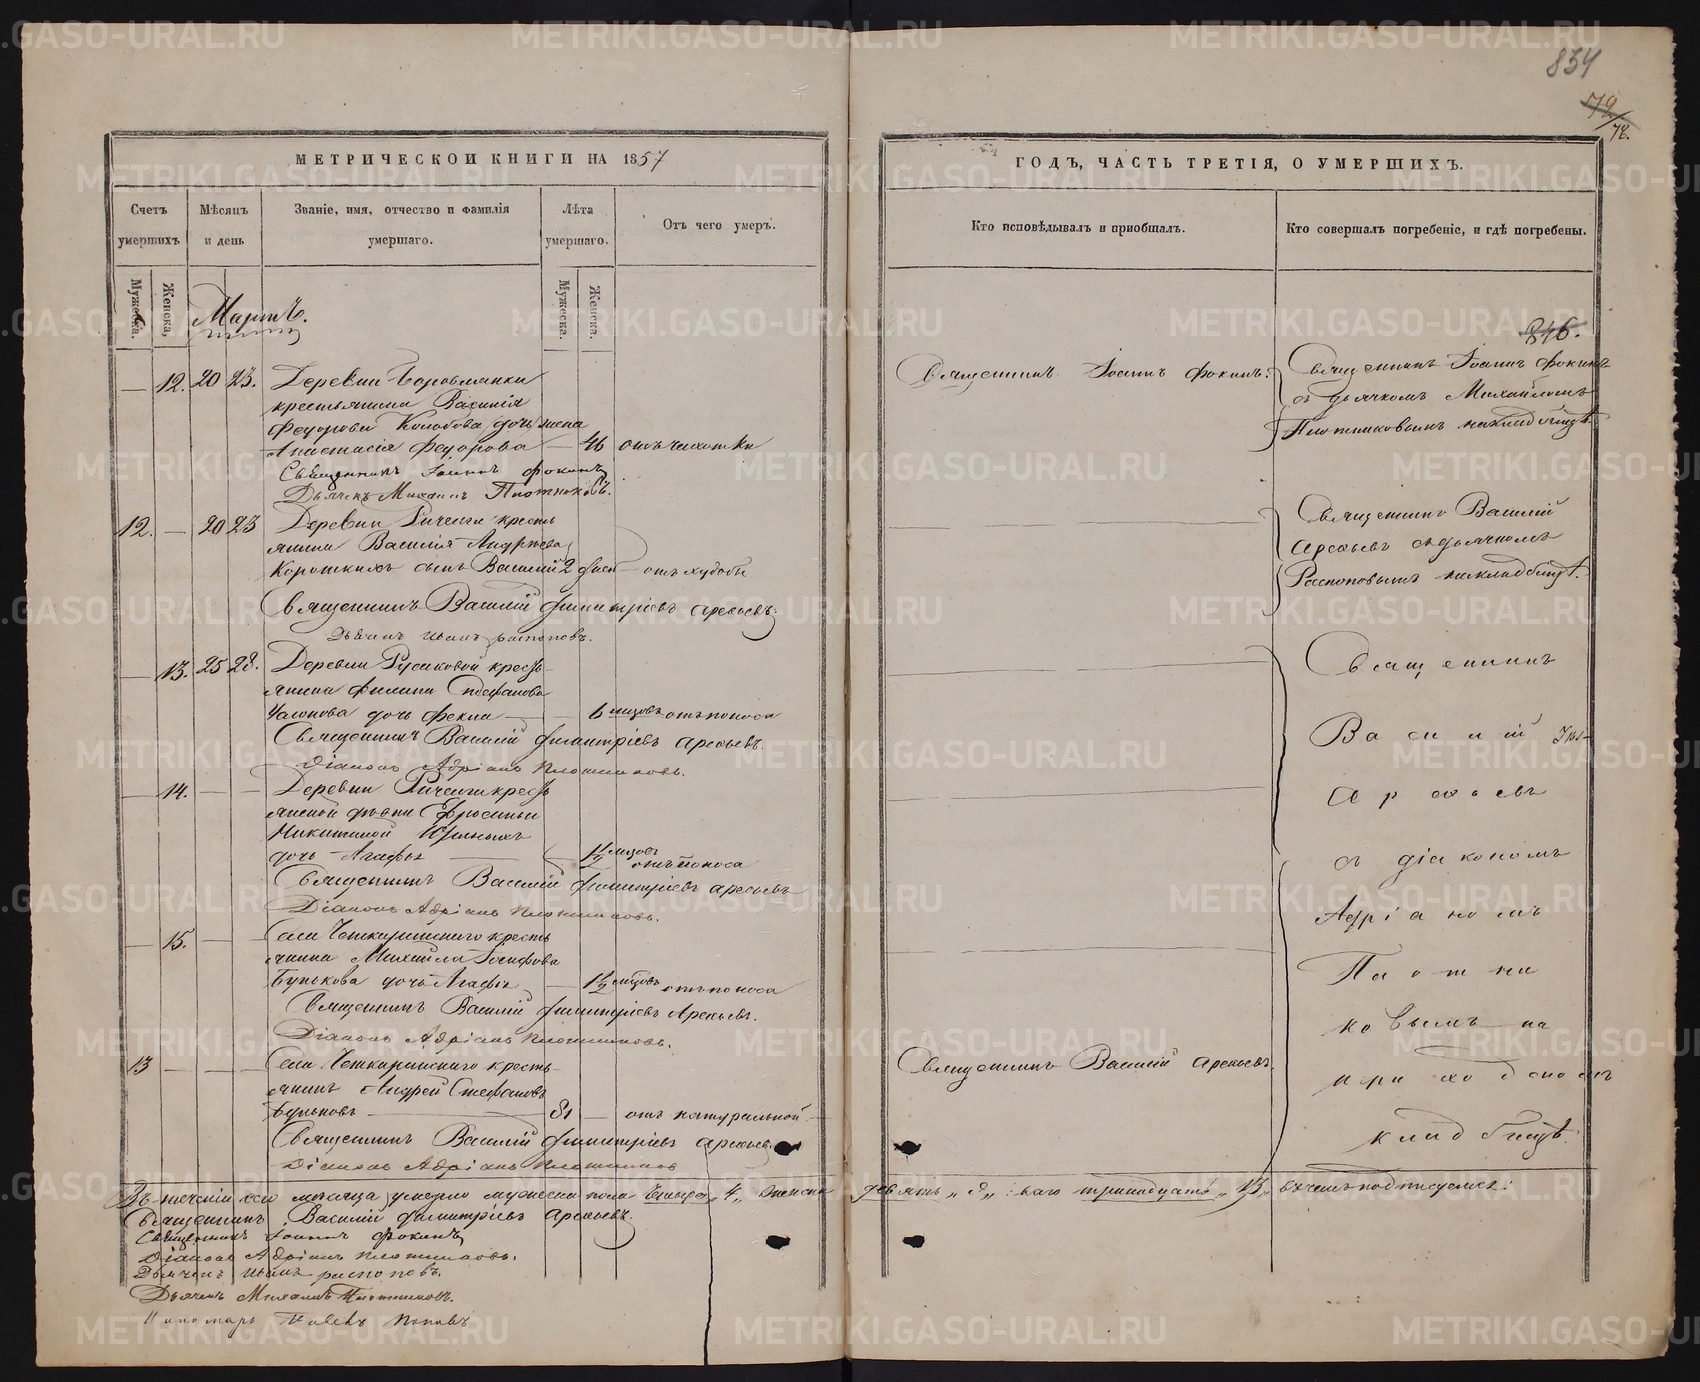 METRIKI.GASO-URAL.RU
834
79/78.
МЕТРИЧЕСКОЙ КНИГИ НА 1857
Счетъ умершихъ
Мѣсяцъ и день
Званіе, имя, отчество и фамилія умершаго.
Лѣта умершаго.
Отъ чего умеръ.
Мужеска.
Женска.
Мужеска.
Женска.
Мартъ.
— 12. 20 23. Деревни Боровлянки
крестьянина
Федорова Колобова дочь жена
Анастасія Федорова — 46 отъ чахотки
Священникъ Іоаннъ Фокинъ
Дьячекъ Михаилъ Плотниковъ.
12. — 20 23 Деревни кресть
янина Василія Андреева
Короткихъ сынъ Василій 2 дней отъ худобы
Священникъ Василій Димитріевъ Арефьевъ.
Дьячекъ Иванъ Распоповъ.
— 13. 25 28. Деревни Русаковой кресть
янина Филипа Стефанова
дочь Фекла — 6 мцовъ отъ поноса
Священникъ Василій Димитріевъ Арефьевъ.
Діаконъ Адріанъ Плотниковъ.
— 14. — — Деревни кресть
янской дѣвки Ефросиньи
Никитиной
дочь Агафья — 1 1/2 мцовъ отъ поноса
Священникъ Василій Димитріевъ Арефьевъ
Діаконъ Адріанъ Плотниковъ.
— 15. — — Села Четкаринскаго кресть
янина Михайла Іосифова
Бунькова дочь Агафья — 1 1/2 мцовъ отъ поноса
Священникъ Василій Димитріевъ Арефьевъ.
Діаконъ Адріанъ Плотниковъ.
13 — — — Села Четкаринскаго кресть-
янинъ Андрей Стефановъ
Буньковъ — 81 — отъ натуральной
Священникъ Василій Димитріевъ Арефьевъ
Діаконъ Адріанъ Плотниковъ
Въ теченіи сего мѣсяца умерло мужеска пола четыре „4„ женска
Священникъ Василій Димитріевъ Арефьевъ.
Священникъ Іоаннъ Фокинъ
Діаконъ Адріанъ Плотниковъ.
Дьячекъ Иванъ Распоповъ.
Дьячекъ Михаилъ Плотниковъ.
Пономарь Поповъ
ГОДЪ, ЧАСТЬ ТРЕТІЯ, О УМЕРШИХЪ.
Кто исповѣдывалъ и пріобщалъ.
Кто совершалъ погребеніе, и гдѣ погребены.
846.
Священникъ Іоаннъ Фокинъ.
Священникъ Іоаннъ Фокинъ
съ дьячкомъ Михайломъ
Плотниковымъ на кладбищѣ.
Священникъ Василій
Арефьевъ съ дьячкомъ
Распоповымъ на кладбищѣ.
Священникъ
Василій
Арефьевъ
съ діакономъ
Адріаномъ
Плотни
ковымъ на
приходскомъ
кладбищѣ.
Священникъ Василій Арефьевъ.
девять „9„ всего тринадцать „13„ въ чемъ подписуемся: